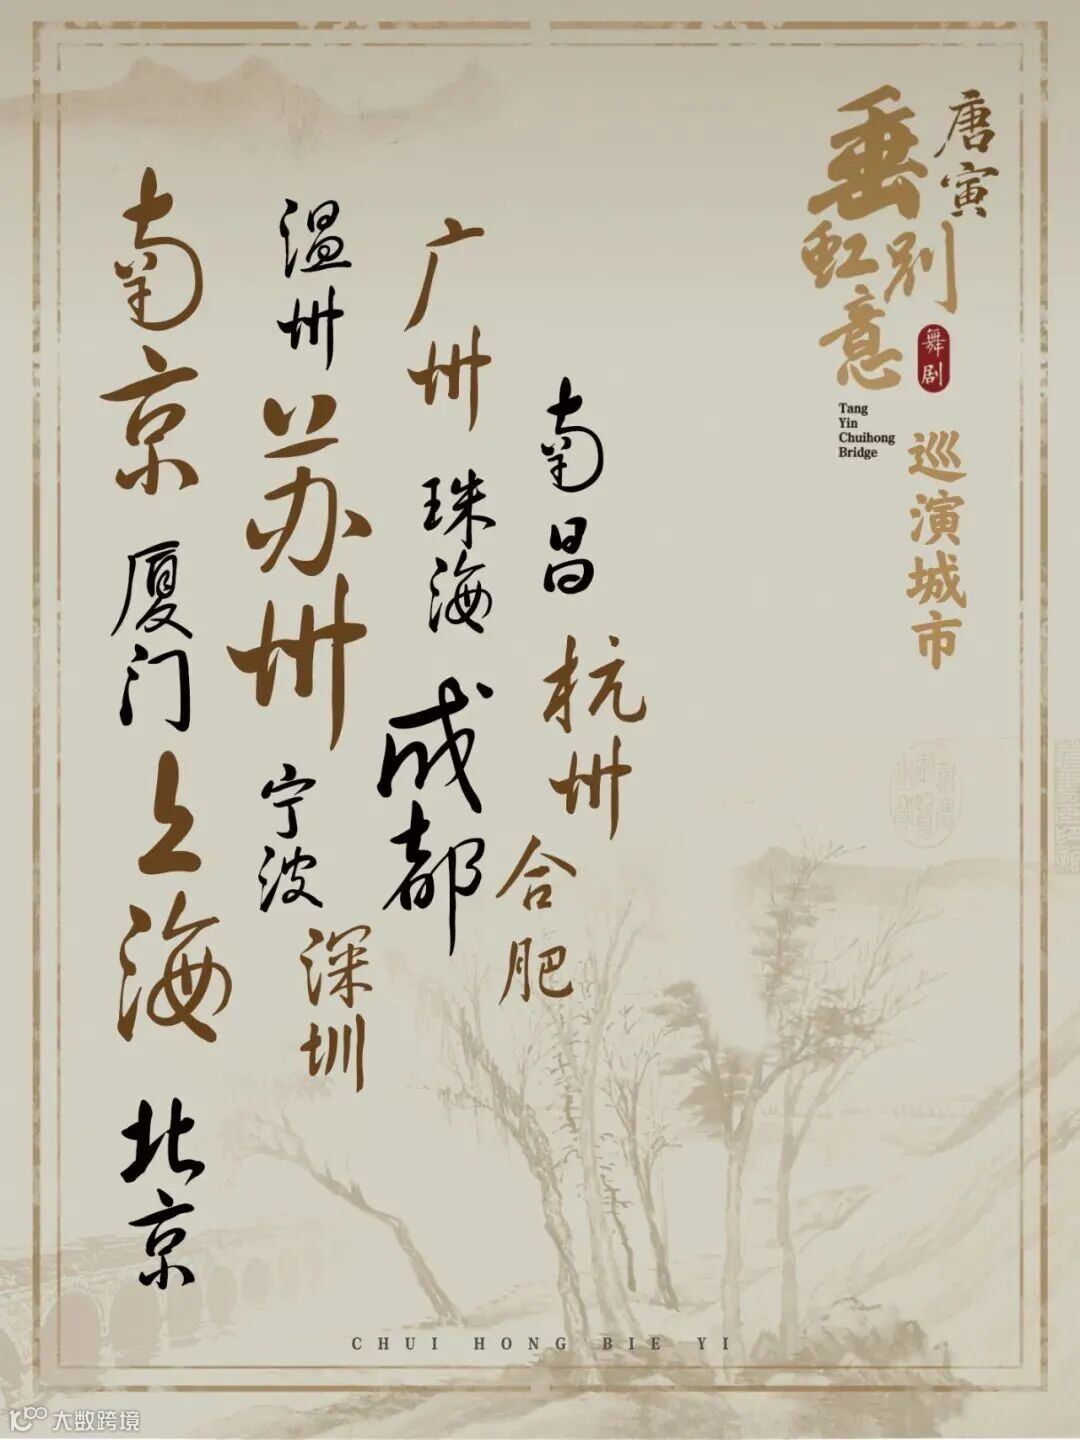 唐寅
垂虹别意
舞剧
Tang
Yin
Chuihong
Bridge
巡演城市
南昌
杭州
合肥
广州
珠海
成都
温州
苏州
宁波
深圳
南京
厦门
上海
北京
CHUI HONG BIE YI
大数跨境